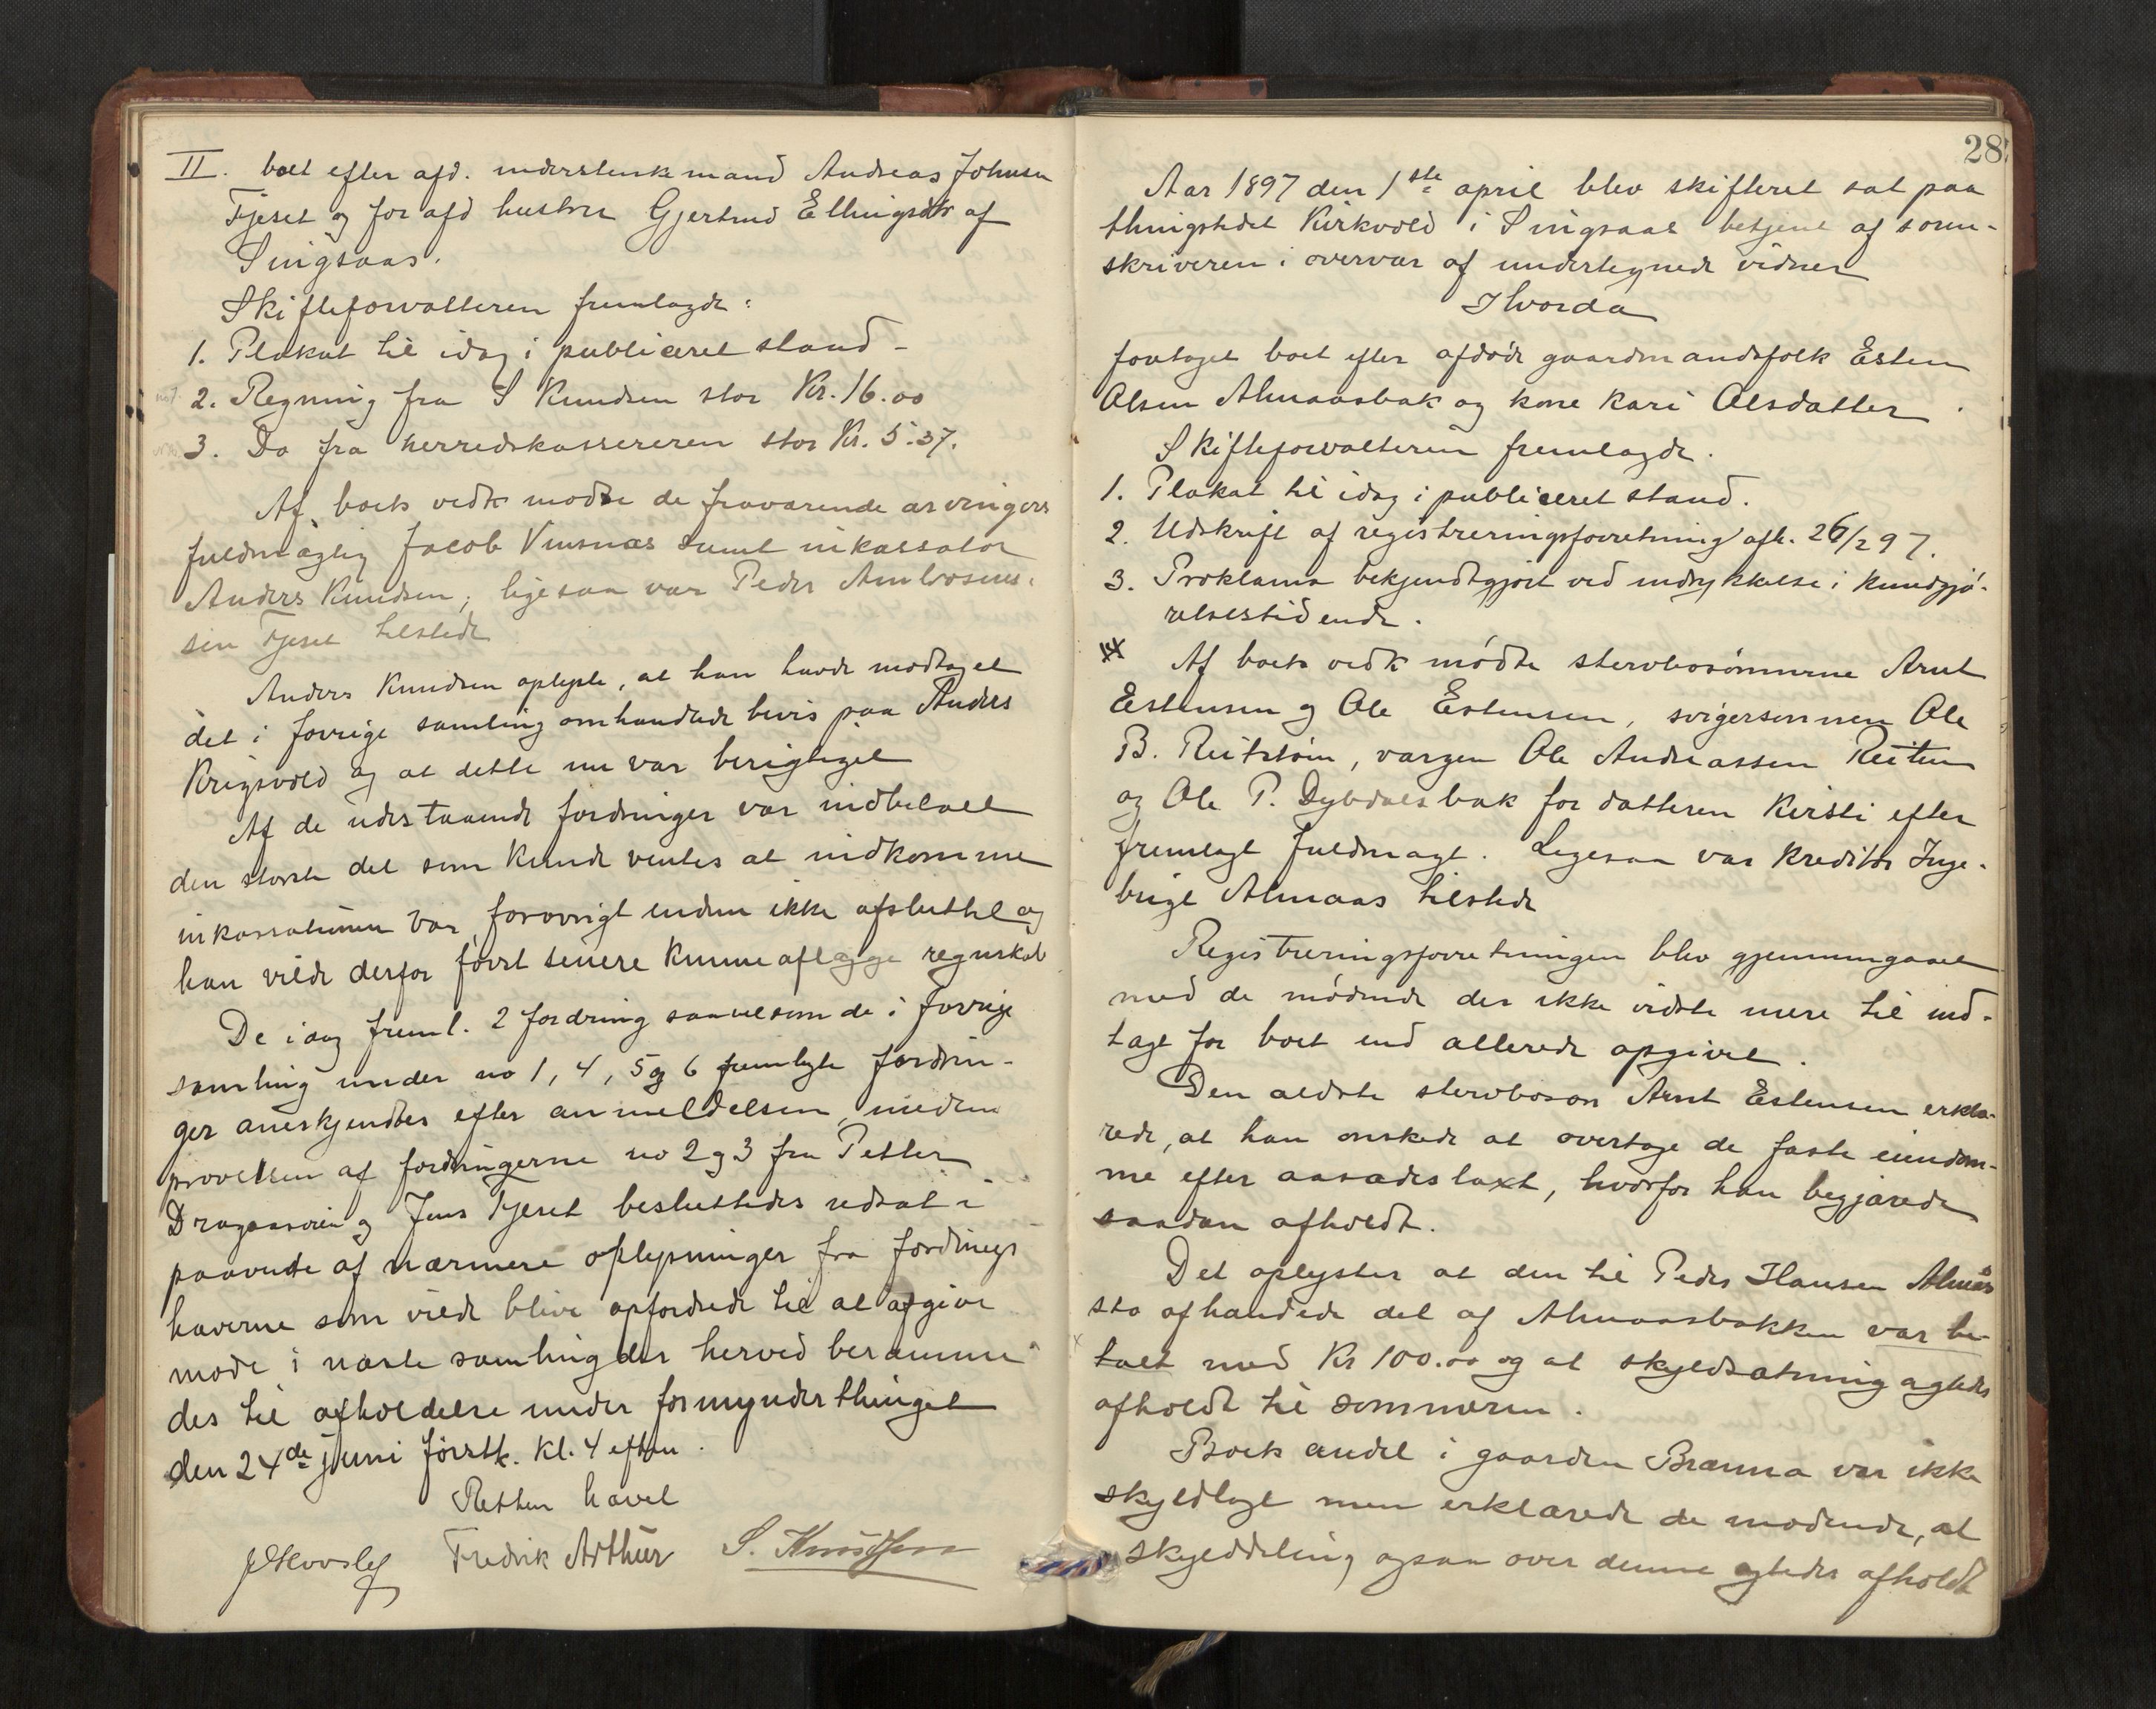 II. boet efter afd. inderstenkemand Andreas Johnsen
Fjeset og for afd hustru Gjertrud Ellingsdtr af
Singsaas.
Skifteforvalteren fremlagde:
1. Plakat til idag i publiceret stand -
2. Regning fra S Knudsen stor Kr. 16.00
3. Do fra herredskassereren stor Kr. 5.37.
Af boets vedk mødte de fraværende arvingers
fuldmægtig Jacob Vinsnæs samt inkassator
Anders Knudsen; ligesaa var Peder Ambrosius-
sen Fjeset tilstede
Anders Knudsen oplyste, at han havde modtaget
det i forrige samling omhandlede bevis paa Anders
Krigsvold og at dette nu var berigtiget
Af de udestaaende fordringer var indbetalt
den største del som kunde ventes at indkomme
inkassationen var forøvrigt endnu ikke afsluttet og
han vilde derfor først senere kunne aflægge regnskab
De idag freml. 2 fordring saavelsom de i forrige
samling under no 1, 4, 5 og 6 fremlagte fordrin-
ger anerkjendtes efter anmeldelsen, medens
prøvelsen af fordringerne no 2 og 3 fra Petter
Dragaasøien og Jens Fjeset besluttedes udsat i
paavente af nærmere oplysninger fra fordrings
haverne som vilde blive opfordrede til at afgive
møde i næste samling der herved beramme-
des til afholdelse under formynderthinget
den 24de juni førstk. kl. 4 efterm.
Retten hævet
Fredrik Arthur S. Knudsen
28
Aar 1897 den 1ste april blev skifteret sat paa
thingstedet Kirkvold i Singsaas betjent af soren-
skriveren i overvær af undertegnede vidner
Hvorda
foretaget boet efter afdøde gaardmandsfolk Esten
Olsen Almaasbak og kone Kari Olsdatter.
Skifteforvalteren fremlagde.
1. Plakat til idag i publiceret stand.
2. Udskrift af registreringsforretning afh. 26/2 97.
3. Proklama bekjendtgjort ved indrykkelse i kundgjø-
relsestidende.
Af boets vedk mødte stervbosønnerne Arnt
Estensen og Ole Estensen, svigersønnen Ole
B. Reitstøin, værgen Ole Andreassen Reiten
og Ole P. Dybdalsbak for datteren Kirsti efter
fremlagt fuldmagt. Ligesaa var kreditor Inge-
brigt Almaas tilstede
Registreringsforretningen blev gjennemgaaet
med de mødende der ikke vidste mere til ind-
tægt for boet end allerede opgivet.
Den ældste stervbosøn Arnt Estensen erklæ-
rede, at han ønskede at overtage de faste eiendom-
me efter aasædestaxt, hvorfor han begjærede
saadan afholdt.
Det oplystes at den til Peder Hansen Almås
sto afhændede del af Almaasbakken var be-
talt med Kr 100.00 og at skyldsætning agtedes
afholdt til sommeren.
Boets andel i gaarden Brænna var ikke
skyldlagt men erklærede de mødende, at
skylddeling ogsaa over denne agtedes afholdt